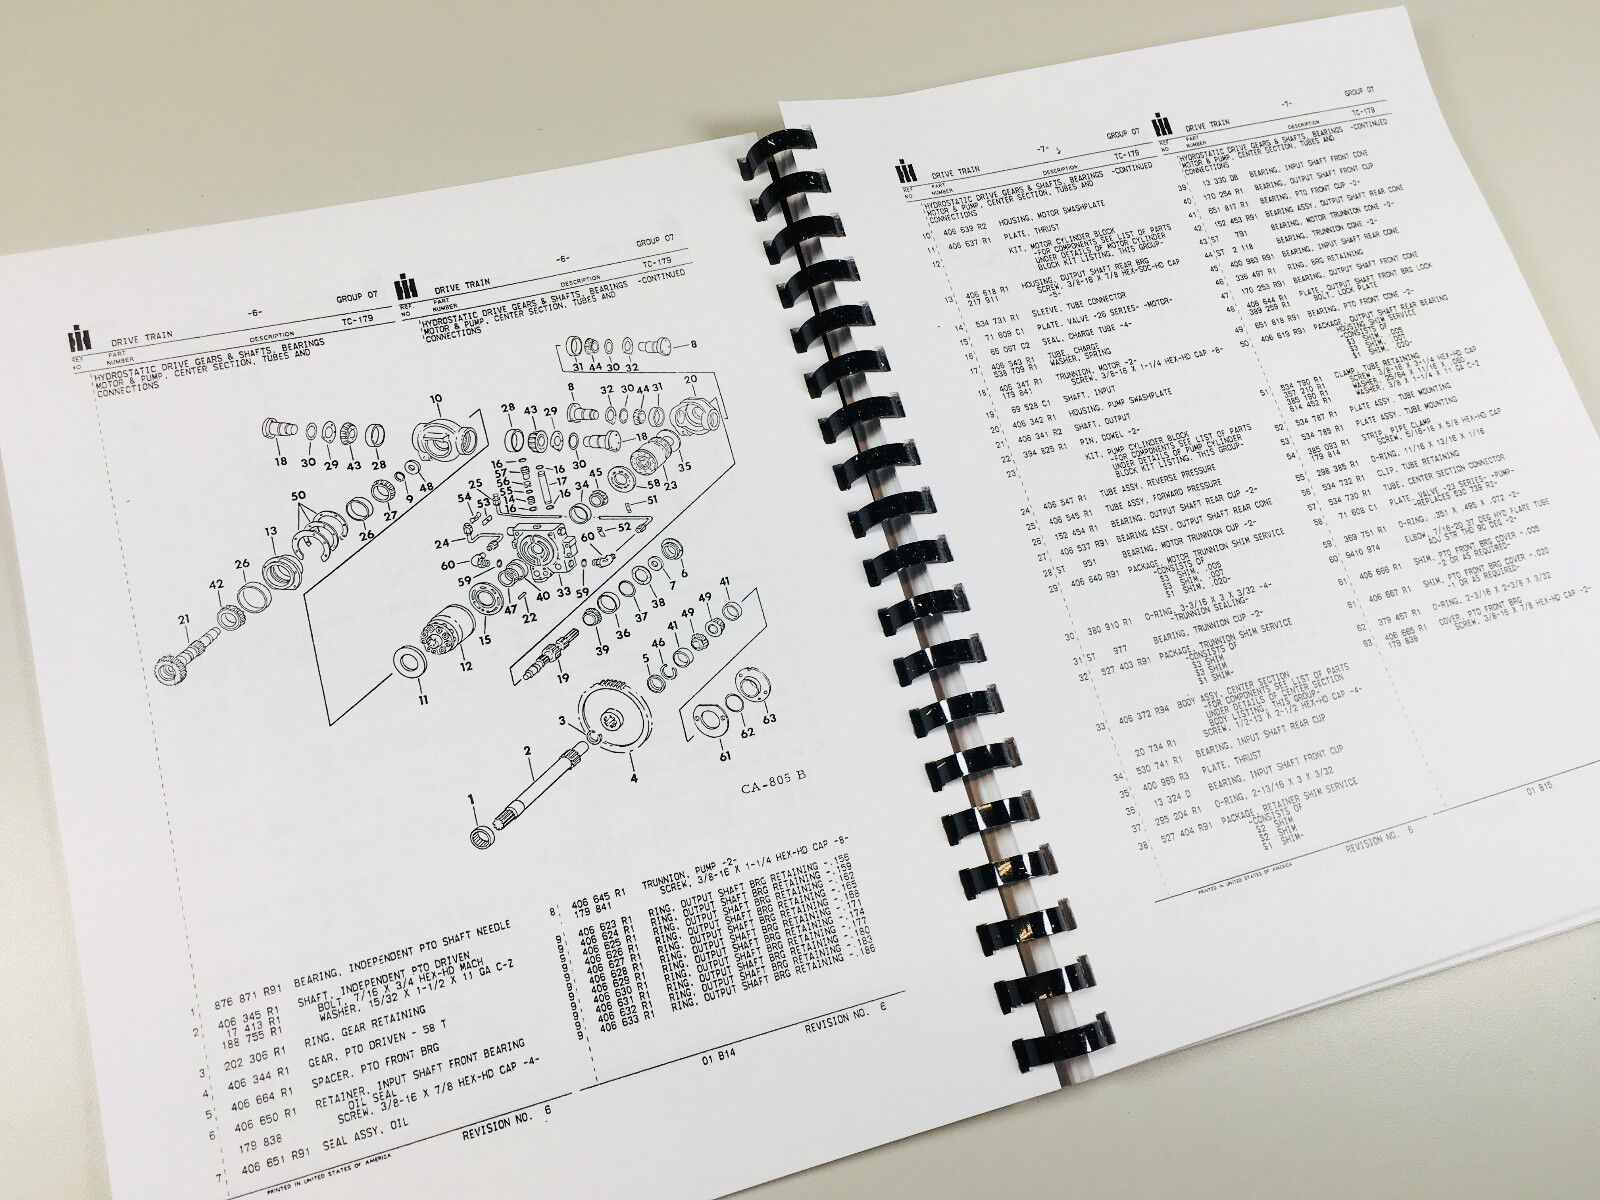 DRIVE TRAIN
-6-
GROUP 07
REF NO
PART NUMBER
DESCRIPTION
TC-179
HYDROSTATIC DRIVE GEARS & SHAFTS, BEARINGS
MOTOR & PUMP, CENTER SECTION, TUBES AND
CONNECTIONS
DRIVE TRAIN
-6-
GROUP 07
REF. NO
PART NUMBER
DESCRIPTION
TC-179
HYDROSTATIC DRIVE GEARS & SHAFTS, BEARINGS -CONTINUED
MOTOR & PUMP, CENTER SECTION, TUBES AND
CONNECTIONS
31 44 30 32
8
8 32 30 44 31 20
10
28 43 29
18 30 29 43 28
30 18
35
9 48
16 57 56 55 14 16
16 17 16
34 45 58 23
50
27
26
25 54 53
51
52
13
24
60
60
26
42
59
59
21
15 47 22 40 33
6
7
38
37
36
39
12
11
19
41
49
49
41
46
5
3
2
4
63
62
61
1
CA-805 B
1 876 871 R91 BEARING, INDEPENDENT PTO SHAFT NEEDLE
2 406 345 R1 SHAFT, INDEPENDENT PTO DRIVEN
17 413 R1 BOLT, 7/16 X 3/4 HEX-HD MACH
188 755 R1 WASHER, 15/32 X 1-1/2 X 11 GA C-Z
3 202 306 R1 RING, GEAR RETAINING
4 406 344 R1 GEAR, PTO DRIVEN - 58 T
5 406 664 R1 SPACER, PTO FRONT BRG
6 406 650 R1 RETAINER, INPUT SHAFT FRONT BEARING
OIL SEAL
179 838 SCREW, 3/8-16 X 7/8 HEX-HD CAP -4-
7 406 651 R91 SEAL ASSY, OIL
PRINTED IN UNITED STATES OF AMERICA
REVISION NO. 6
8 406 645 R1 TRUNNION, PUMP -2-
179 841 SCREW, 3/8-16 X 1-1/4 HEX-HD CAP -8-
9 406 623 R1 RING, OUTPUT SHAFT BRG RETAINING -.156
9 406 624 R1 RING, OUTPUT SHAFT BRG RETAINING -.159
9 406 625 R1 RING, OUTPUT SHAFT BRG RETAINING -.162
9 406 626 R1 RING, OUTPUT SHAFT BRG RETAINING -.165
9 406 627 R1 RING, OUTPUT SHAFT BRG RETAINING -.168
9 406 628 R1 RING, OUTPUT SHAFT BRG RETAINING -.171
9 406 629 R1 RING, OUTPUT SHAFT BRG RETAINING -.174
9 406 630 R1 RING, OUTPUT SHAFT BRG RETAINING -.177
9 406 631 R1 RING, OUTPUT SHAFT BRG RETAINING -.180
9 406 632 R1 RING, OUTPUT SHAFT BRG RETAINING -.183
9 406 633 R1 RING, OUTPUT SHAFT BRG RETAINING -.186
01 B14
REVISION NO. 6
DRIVE TRAIN
-7-
GROUP 07
REF NO
PART NUMBER
DESCRIPTION
TC-179
HYDROSTATIC DRIVE GEARS & SHAFTS, BEARINGS -CONTINUED
MOTOR & PUMP, CENTER SECTION, TUBES AND
CONNECTIONS
10 406 639 R2 HOUSING, MOTOR SWASHPLATE
11 406 637 R1 PLATE, THRUST
12 KIT, MOTOR CYLINDER BLOCK
-FOR COMPONENTS SEE LIST OF PARTS
UNDER DETAILS OF MOTOR CYLINDER
BLOCK KIT LISTING, THIS GROUP-
13 406 618 R1 HOUSING, OUTPUT SHAFT REAR BRG
217 911 SCREW, 3/8-16 X 7/8 HEX-SOC-HD CAP
-5-
14 534 731 R1 SLEEVE, TUBE CONNECTOR
15 71 609 C1 PLATE, VALVE -26 SERIES- -MOTOR-
16 65 067 C2 SEAL, CHARGE TUBE -4-
17 406 343 R1 TUBE, CHARGE
538 709 R1 WASHER, SPRING
18 406 347 R1 TRUNNION, MOTOR -2-
179 841 SCREW, 3/8-16 X 1-1/4 HEX-HD CAP -8-
19 69 528 C1 SHAFT, INPUT
20 406 342 R1 HOUSING, PUMP SWASHPLATE
21 406 341 R2 SHAFT, OUTPUT
22 394 825 R1 PIN, DOWEL -2-
23 KIT, PUMP CYLINDER BLOCK
-FOR COMPONENTS SEE LIST OF PARTS
UNDER DETAILS OF PUMP CYLINDER
BLOCK KIT LISTING, THIS GROUP-
24 406 547 R1 TUBE ASSY, REVERSE PRESSURE
25 406 545 R1 TUBE ASSY, FORWARD PRESSURE
26 152 454 R1 BEARING, OUTPUT SHAFT REAR CUP -2-
27 406 537 R91 BEARING ASSY, OUTPUT SHAFT REAR CONE
28 ST 951 BEARING, MOTOR TRUNNION CUP -2-
29 406 640 R91 PACKAGE, MOTOR TRUNNION SHIM SERVICE
-CONSISTS OF
30 380 910 R1 O-RING, 3-3/16 X 3 X 3/32 -4-
-TRUNNION SEALING-
31 ST 977 BEARING, TRUNNION CUP -2-
32 527 403 R91 PACKAGE, TRUNNION SHIM SERVICE
-CONSISTS OF
S3 SHIM
S3 SHIM
S1 SHIM-
33 406 372 R94 BODY ASSY, CENTER SECTION
-FOR COMPONENTS SEE LIST OF PARTS
UNDER DETAILS OF CENTER SECTION
BODY LISTING, THIS GROUP-
SCREW, 1/2-13 X 2-1/2 HEX-HD CAP -4-
34 20 734 R1 BEARING, INPUT SHAFT REAR CUP
35 530 741 R1 PLATE, THRUST
36 13 324 D BEARING, INPUT SHAFT FRONT CUP
37 295 204 R1 O-RING, 2-13/16 X 3 X 3/32
38 527 404 R91 PACKAGE, RETAINER SHIM SERVICE
-CONSISTS OF
S2 SHIM
S2 SHIM
S1 SHIM-
PRINTED IN UNITED STATES OF AMERICA
REVISION NO. 6
DRIVE TRAIN
-7-
GROUP 07
REF NO
PART NUMBER
DESCRIPTION
TC-179
HYDROSTATIC DRIVE GEARS & SHAFTS, BEARINGS -CONTINUED
MOTOR & PUMP, CENTER SECTION, TUBES AND
CONNECTIONS
39 13 330 DB BEARING, INPUT SHAFT FRONT CONE
40 170 254 R1 BEARING, OUTPUT SHAFT FRONT CUP
41 651 817 R1 BEARING, PTO FRONT CUP -2-
42 152 453 R91 BEARING ASSY, OUTPUT SHAFT REAR CONE
43 ST 791 BEARING, MOTOR TRUNNION CONE -2-
44 ST 2 118 BEARING, TRUNNION CONE -2-
45 400 983 R91 BEARING, INPUT SHAFT REAR CONE
46 336 497 R1 RING, BRG RETAINING
47 170 253 R91 BEARING, OUTPUT SHAFT FRONT CONE
48 406 644 R1 PLATE, OUTPUT SHAFT FRONT BRG LOCK
389 259 R1 BOLT, LOCK PLATE
49 651 818 R91 BEARING, PTO FRONT CONE -2-
50 406 619 R91 PACKAGE, OUTPUT SHAFT REAR BEARING
HOUSING SHIM SERVICE
-CONSISTS OF
51 534 790 R1 CLAMP, TUBE RETAINING
52 534 787 R1 PLATE ASSY, TUBE MOUNTING
53 534 785 R1 PLATE ASSY, TUBE MOUNTING
54 385 093 R1 STRIP, PIPE CLAMP
179 814 SCREW, 5/16-18 X 5/8 HEX-HD CAP
55 298 385 R1 O-RING, 11/16 X 13/16 X 1/16
56 534 732 R1 CLIP, TUBE RETAINING
57 534 730 R1 TUBE, CENTER SECTION CONNECTOR
58 71 608 C1 PLATE, VALVE -23 SERIES- -PUMP-
59 369 751 R1 O-RING, .351 X .495 X .072 -2-
60 9410 974 ELBOW, 7/16-20 37 DEG HYD FLARE TUBE
ADJ STR THD 90 DEG -2-
61 406 666 R1 SHIM, PTO FRONT BRG COVER -.005
-2 OR AS REQUIRED-
61 406 667 R1 SHIM, PTO FRONT BRG COVER -.020
-1 OR AS REQUIRED-
62 379 457 R1 O-RING, 2-3/16 X 2-3/8 X 3/32
63 406 665 R1 COVER, PTO FRONT BRG
179 838 SCREW, 3/8-16 X 7/8 HEX-HD CAP -2-
01 B15